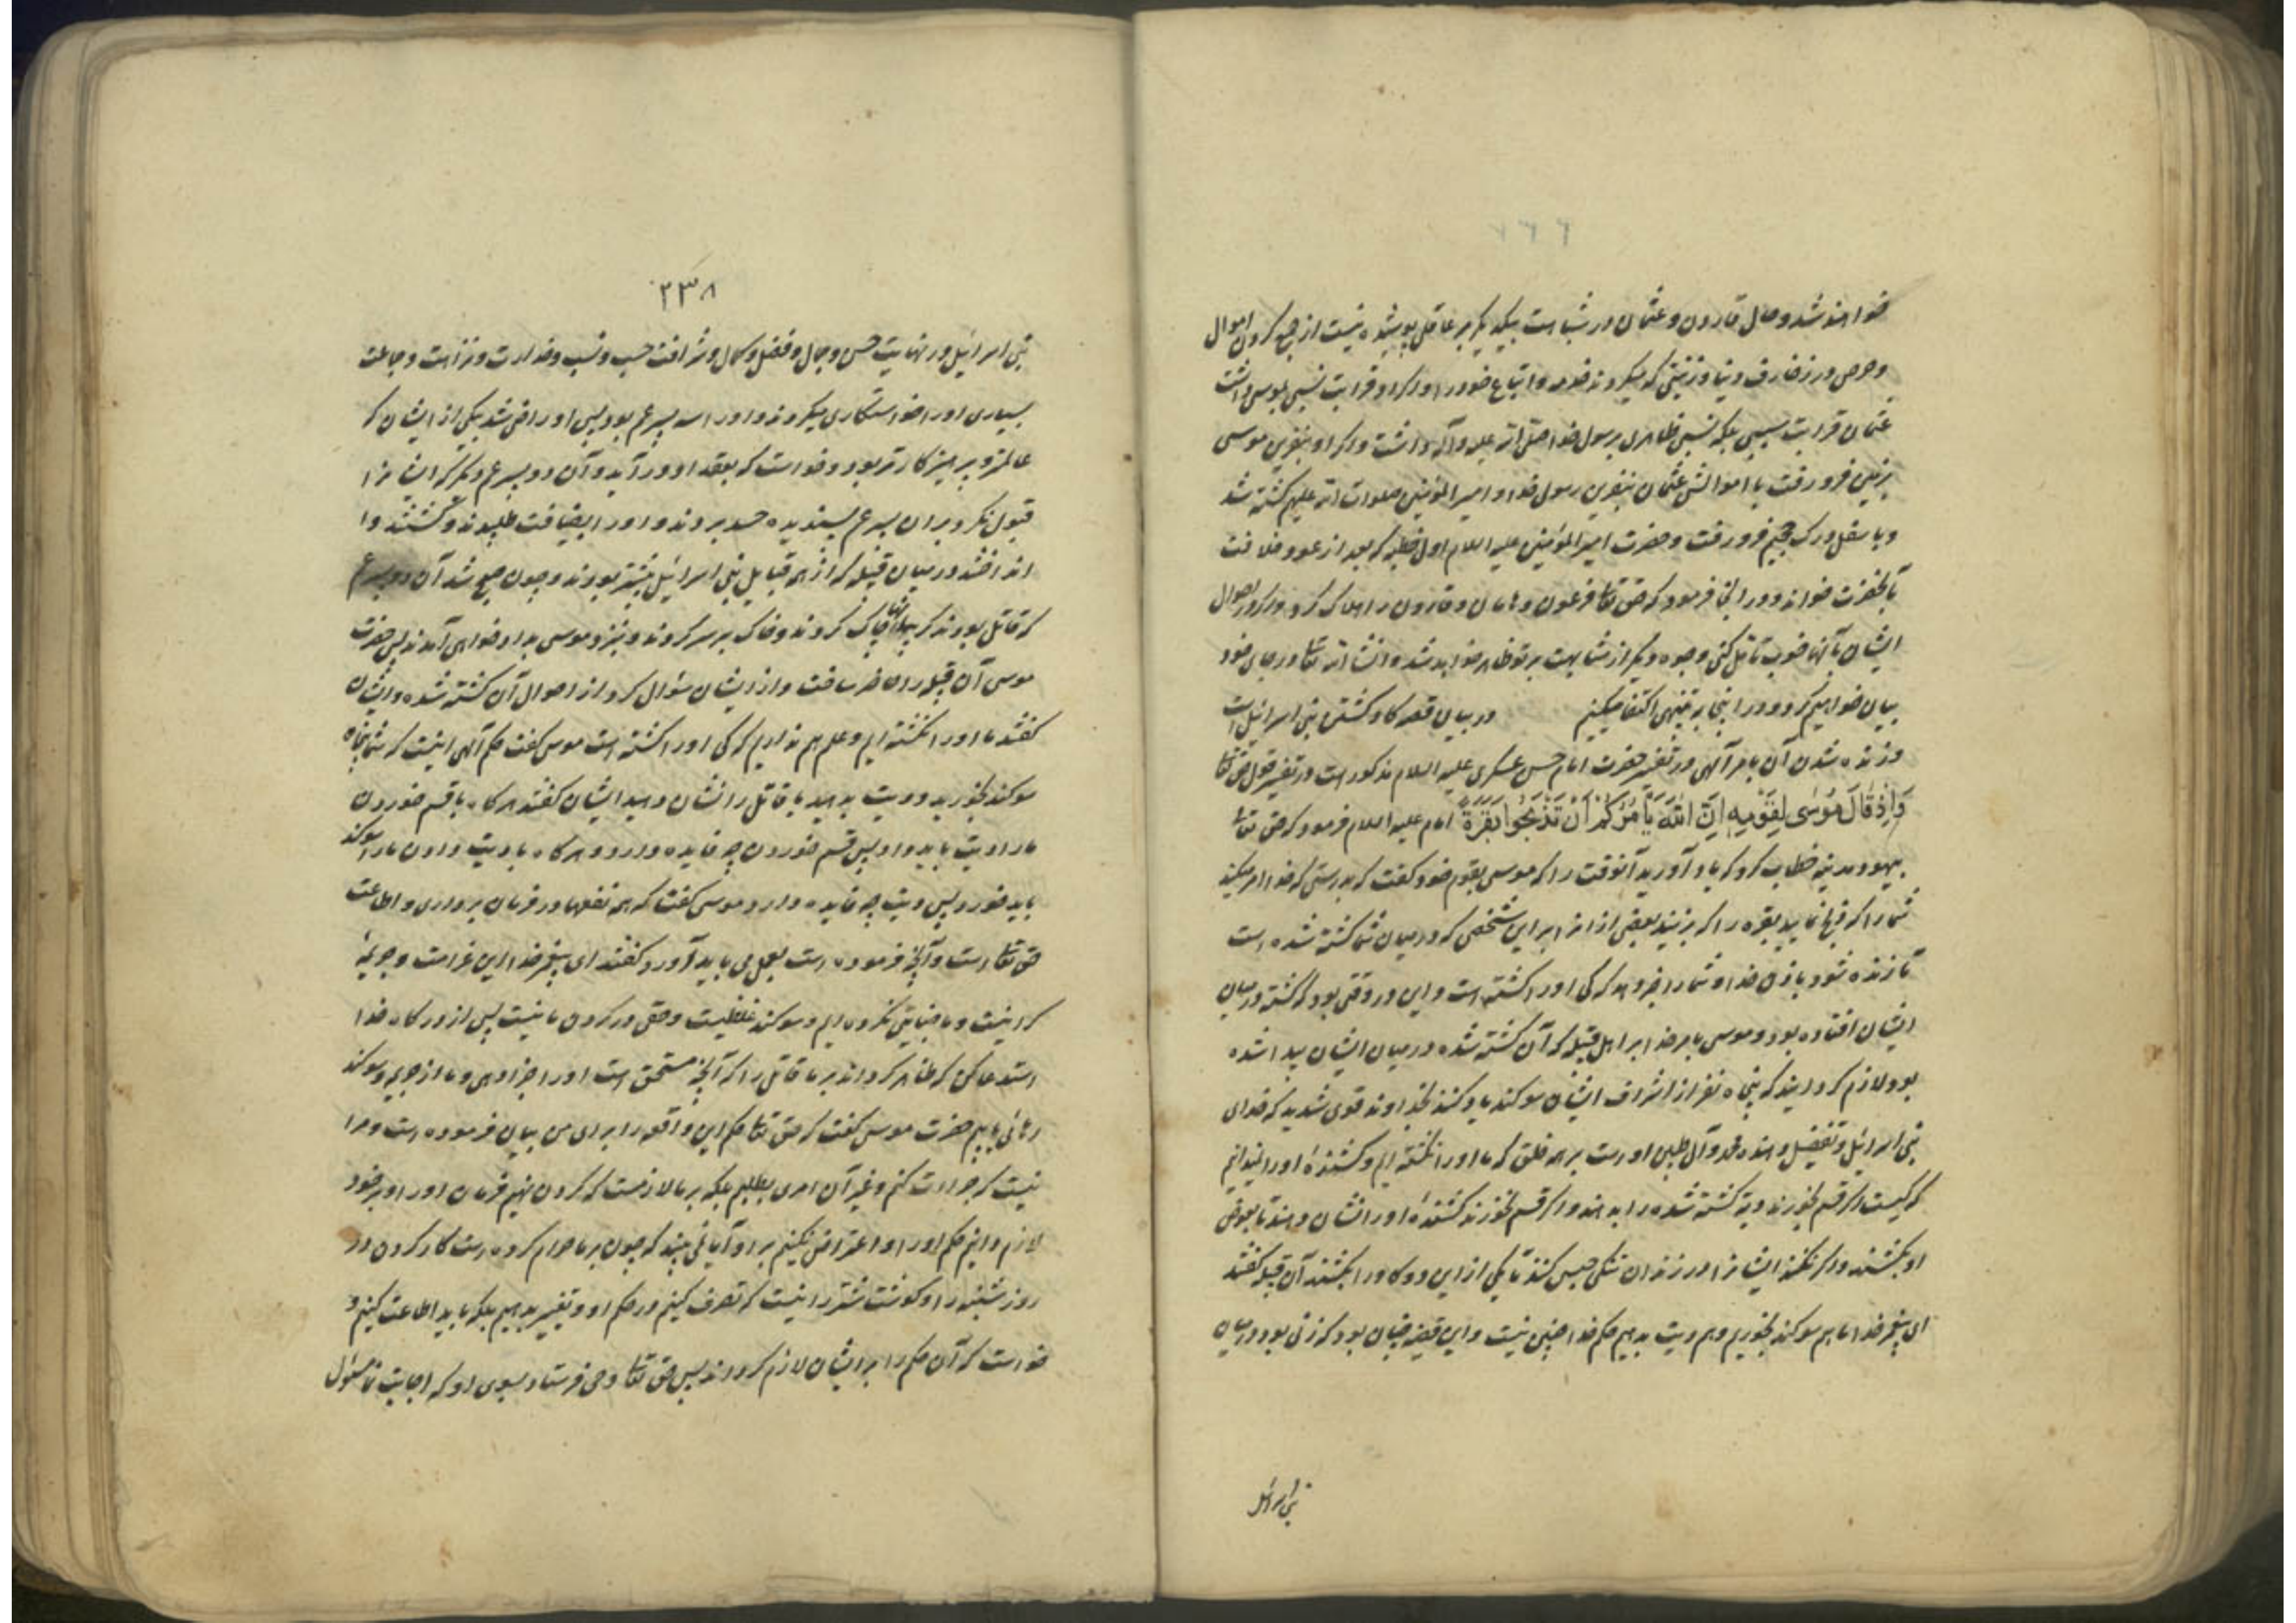 ۲۳۸
خواهند شد و حال قارون و عثمان در شباهت بیکدیگر بر عاقل پوشیده نیست از جمع کردن اموال
و حرص در زخارف دنیا و زینتی که میکردند خود و اتباع خود را و اگر او قرابت نسبی بموسی داشت
عثمان قرابت سببی بلکه نسبی ظاهری برسول خدا صلی الله علیه وآله داشت و اگر او بنفرین موسی
بزمین فرو رفت با اموالش عثمان بنفرین رسول خدا و امیر المؤمنین صلوات الله علیهم کشته شد
و باسفل درک جحیم فرو رفت و حضرت امیر المؤمنین علیه السلام اول خطبه که بعد از عود خلافت
بآنحضرت خواند در انجا فرمود که حق تعالی فرعون و هامان و قارون را هلاک کرد و اگر در احوال
ایشان و آنها خوب تامل کنی وجوه دیگر از مشابهت بر تو ظاهر خواهد شد و انشاء الله تعالی در جای خود
بیان خواهیم کرد و در اینجا بر تنبیهی اکتفا میکنیم در بیان قصه کاو کشتن بنی اسرائیل است
و زنده شدن آن بامر آلهی در تفسیر حضرت امام حسن عسکری علیه السلام مذکور است در تفسیر قول حق تعالی
وَاِذْ قَالَ مُوسٰی لِقَوْمِهِ اِنَّ اللّٰهَ یَأْمُرُکُمْ اَنْ تَذْبَحُوا بَقَرَةً امام علیه السلام فرمود که حق تعالی
بیهود مدینه خطاب کرد که یاد آورید آنوقت را که موسی بقوم خود گفت که بدرستی که خدا امر میکند
شما را که ذبح نمایید بقره را که بزنید بعضی از انرا بر این شخصی که در میان شما کشته شده است
تا زنده شود باذن خدا و شما را خبر دهد که کی او را کشته است و این در وقتی بود که کشته در میان
ایشان افتاده بود و موسی بامر خدا بر اهل قبیله که آن کشته شده در میان ایشان پیدا شده
بود لازم کردانید که پنجاه نفر از اشراف ایشان سوکند یاد کنند بخداوند قوی شدید که خدای
بنی اسرائیل و تفضیل دهنده محمد و آل طیبین اوست بر همه خلق که ما او را نکشته ایم و کشندهٔ او را نمیدانیم
که کیست اگر قسم بخورند دیهٔ کشته شده را بدهند و اگر قسم نخورند کشندهٔ او را نشان دهند تا بعوض
او بکشند و اگر نکنند ایشانرا در زندان تنکی حبس کنند تا یکی از این دو کار را بکنند آن قبیله گفتند
ای پیغمبر خدا ما هم سوکند بخوریم و هم دیت بدهیم حکم خدا چنین نیست و این قصه چنان بود که زنی بود در میان
بنی اسرائیل
بنی اسرائیل در نهایت حسن و جمال و فضل و کمال و شرافت حسب و نسب و خدارت و نزاهت و جماعت
بسیاری او را خواستکاری میکردند و او را سه پسر عم بود پس او راضی شد بیکی از ایشان که
عالمتر و پرهیزکارتر بود و خواست که بعقد او در آید و آن دو پسر عم دیگر که ایشانرا
قبول نکرد بر ان پسر عم پسندیده حسد بردند و او را بضیافت طلبیدند و کشتند و
انداختند در میان قبیله که از همه قبایل بنی اسرائیل بیشتر بودند و چون صبح شد آن دو پسر عم
که قاتل بودند گریبانها چاک کردند و خاک بر سر کردند و بنزد موسی بداد خواهی آمدند پس حضرت
موسی آن قبیله را حاضر ساخت و از ایشان سؤال کرد از احوال آن کشته شده و ایشان
گفتند ما او را نکشته ایم و علم هم نداریم که کی او را کشته است موسی گفت حکم آلهی اینست که شما پنجاه
سوکند بخورید و دیت بدهید یا قاتل را نشان دهید ایشان گفتند هرگاه با قسم خوردن
ما را دیت باید داد پس قسم خوردن چه فایده دارد و هرگاه با دیت دادن ما را سوکند
باید خورد پس دیت چه فایده دارد موسی گفت که همه نفعها در فرمان برداری و اطاعت
حق تعالی است و آنچه فرموده است بعمل می باید آورد گفتند ای پیغمبر خدا این غرامت و جریمهٔ
کرانیست و ما جنایتی نکرده ایم و سوکند غلیظیست و حقی در گردن ما نیست پس از درگاه خدا
استدعا کن که ظاهر گرداند بر ما قاتل را که آنچه مستحق است او را جزا دهی و ما از جریمه و سوکند
رهائی یابیم حضرت موسی گفت که حق تعالی حکم این واقعه را برای من بیان فرموده است و مرا
نیست که جرات کنم و غیر آن امری بطلبم بلکه بر ما لازمست که گردن نهیم فرمان او را و بر خود
لازم دانیم حکم او را و اعتراض نکنیم بر او آیا نمی بینید که چون بر ما حرام کرده است کار کردن در
روز شنبه را و گوشت شتر را نیست که تصرف کنیم در حکم او و تغییر بدهیم بلکه باید اطاعت کنیم و
خواست که آن حکم را بر ایشان لازم گرداند پس حق تعالی وحی فرستاد بسوی او که اجابت نما مسئول